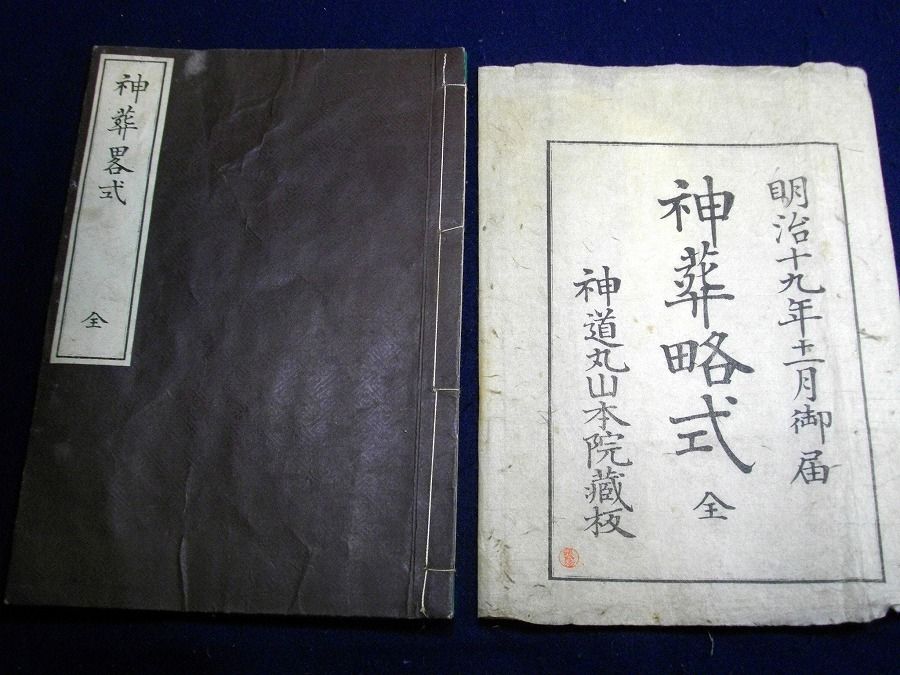 神葬畧式
全
明治十九年十二月御届
神葬略式
全
神道丸山本院藏板